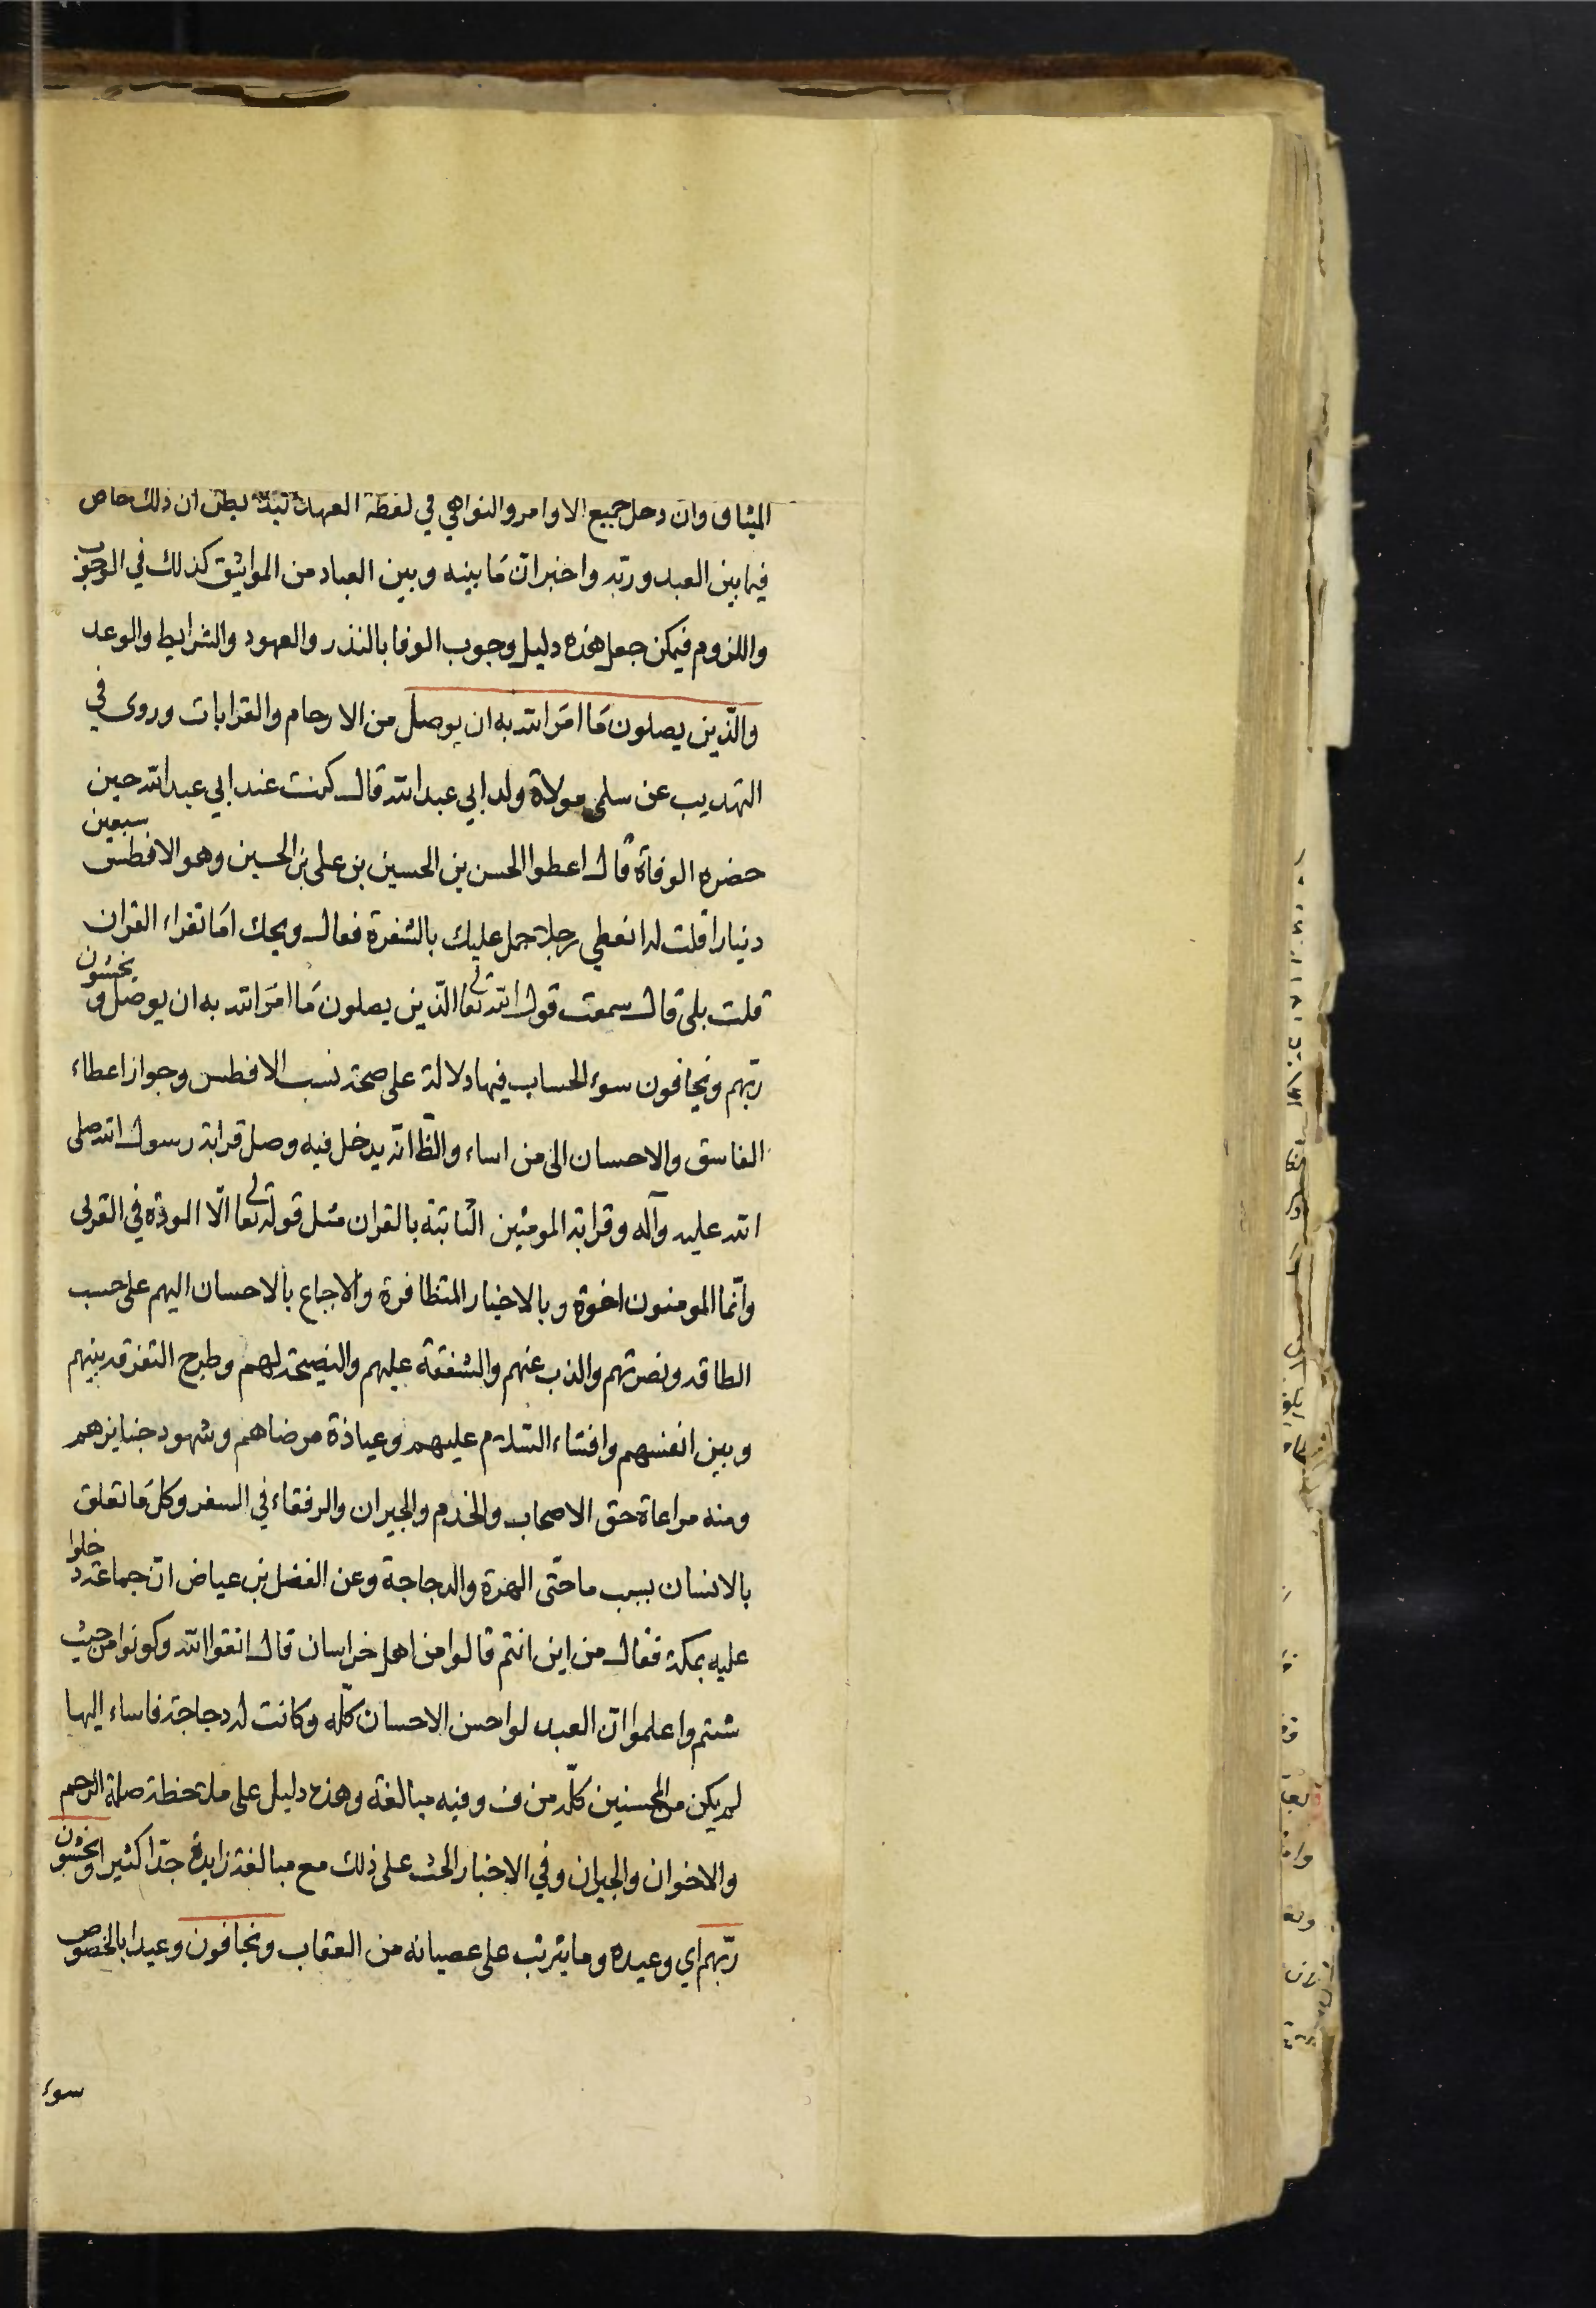 الميثاق وان دخل جميع الاوامر والنواهي في لفظة العهد لئلا يظن ان ذلك خاص
فيما بين العبد وربّه واخبر انّ مَا بينه وبين العباد من المواثيق كذلك في الوجوب
واللزوم فيمكن جعل هذه دليل وجوب الوفا بالنذر والعهود والشرايط والوعد
والّذين يصلون مَا امَر الله به ان يوصل من الارحام والقرابات وروى في
التهذيب عن سلمى مولاة ولد ابي عبدالله قال كنت عند ابي عبدالله حين
حضره الوفاة قال اعطوا الحسن بن الحسين بن على بن الحسين وهو الافطس سبعين
دينارا قلت له اتعطي رجلا حمل عليك بالشفرة فقال ويحك امَا تقراء القران
قلت بلى قال سمعت قول الله تعالى الّذين يصلون مَا امَر الله به ان يوصل ويخشون
ربّهم ويخافون سوء الحساب فيها دلالة على صحة نسب الافطس وجواز اعطاء
الفاسق والاحسان الى من اساء والظّ انّه يدخل فيه وصل قرابة رسول الله صلى
الله عليه وآله وقرابة المومنين الثابتة بالقران مثل قوله تعالى الّا المودّة في القربى
وانّما المومنون اخوة وبالاخبار المتظافرة والاجماع بالاحسان اليهم على حسب
الطاقه ونصرتهم والذب عنهم والشفقة عليهم والنصيحة لهم وطرح التفرقه بينهم
وبين انفسهم وافشاء السّلام عليهم وعيادة مرضاهم وشهود جنايزهم
ومنه مراعاة حق الاصحاب والخدم والجيران والرفقاء في السفر وكل مَا تعلق
بالانسان بسبب ما حتّى الهرة والدجاجة وعن الفضل بن عياض انّ جماعة دخلوا
عليه بمكة فقال من اين انتم قالوا من اهل خراسان قال اتقوا الله وكونوا من حيث
شئتم واعلموا انّ العبد لو احسن الاحسان كلّه وكانت له دجاجة فاساء اليها
لم يكن من المحسنين كلّه من ف وفيه مبالغة وهذه دليل على ملاحظة صلة الرحم
والاخوان والجيران وفي الاخبار الحث على ذلك مع مبالغة زايدة جدّا كثيرا ويخشون
ربّهم اي وعيده وما يترتب على عصيانه من العقاب ويخافون وعيدا بالخصوص
سوء